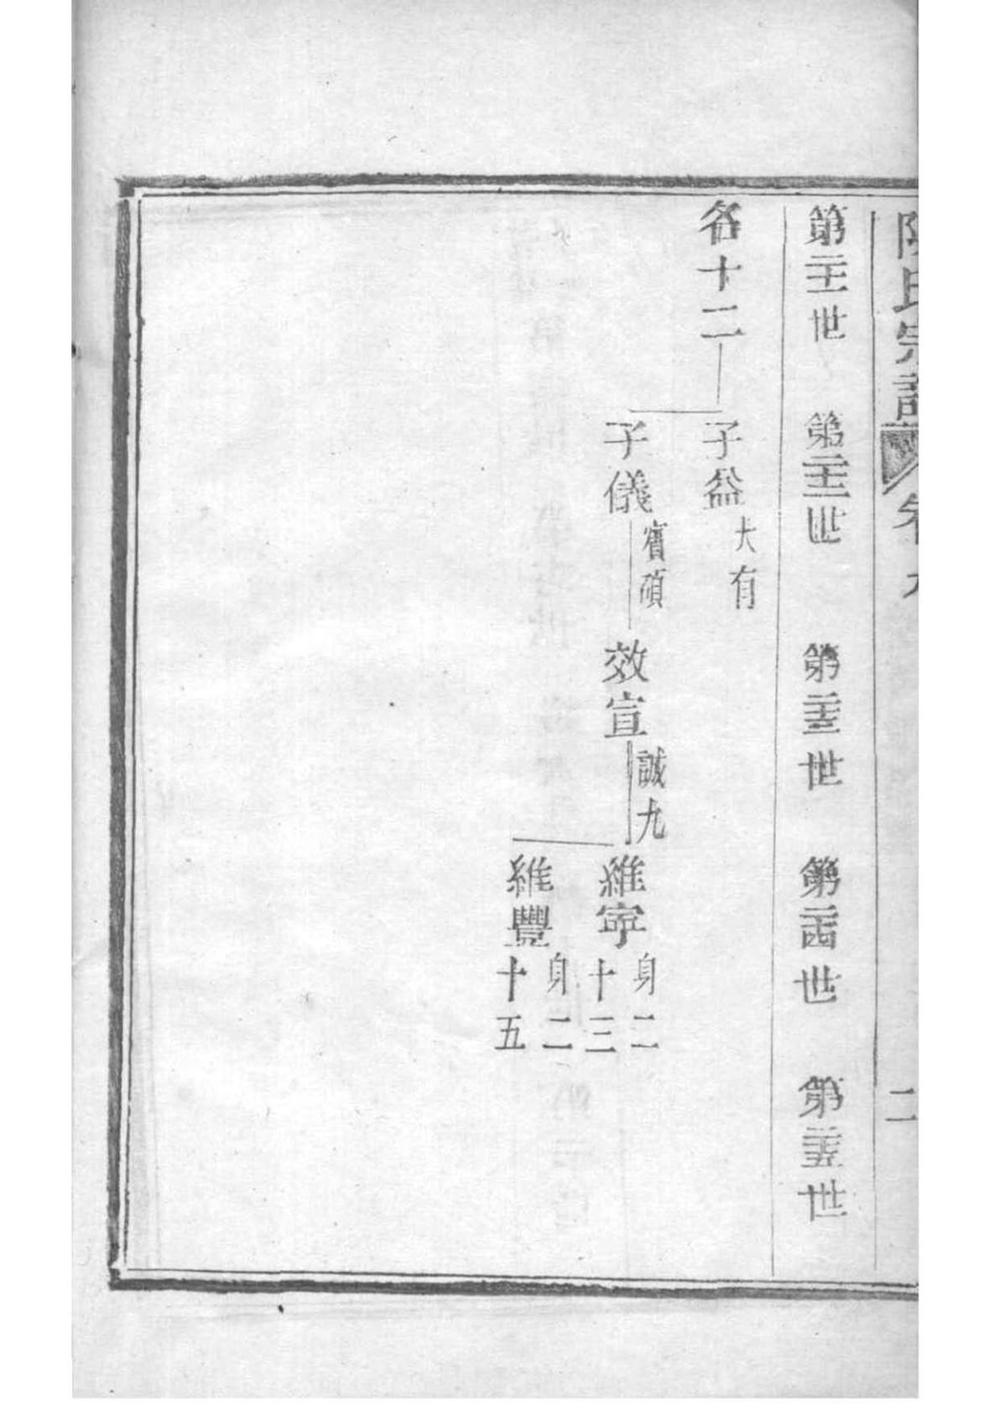 陳氏宗譜 卷九 二
第二十一世 第二十二世 第二十三世 第二十四世 第二十五世
各十二 子益 大有
子儀 賓碩 效宣 誠九 維寧 身二十三
維豐 身二十五